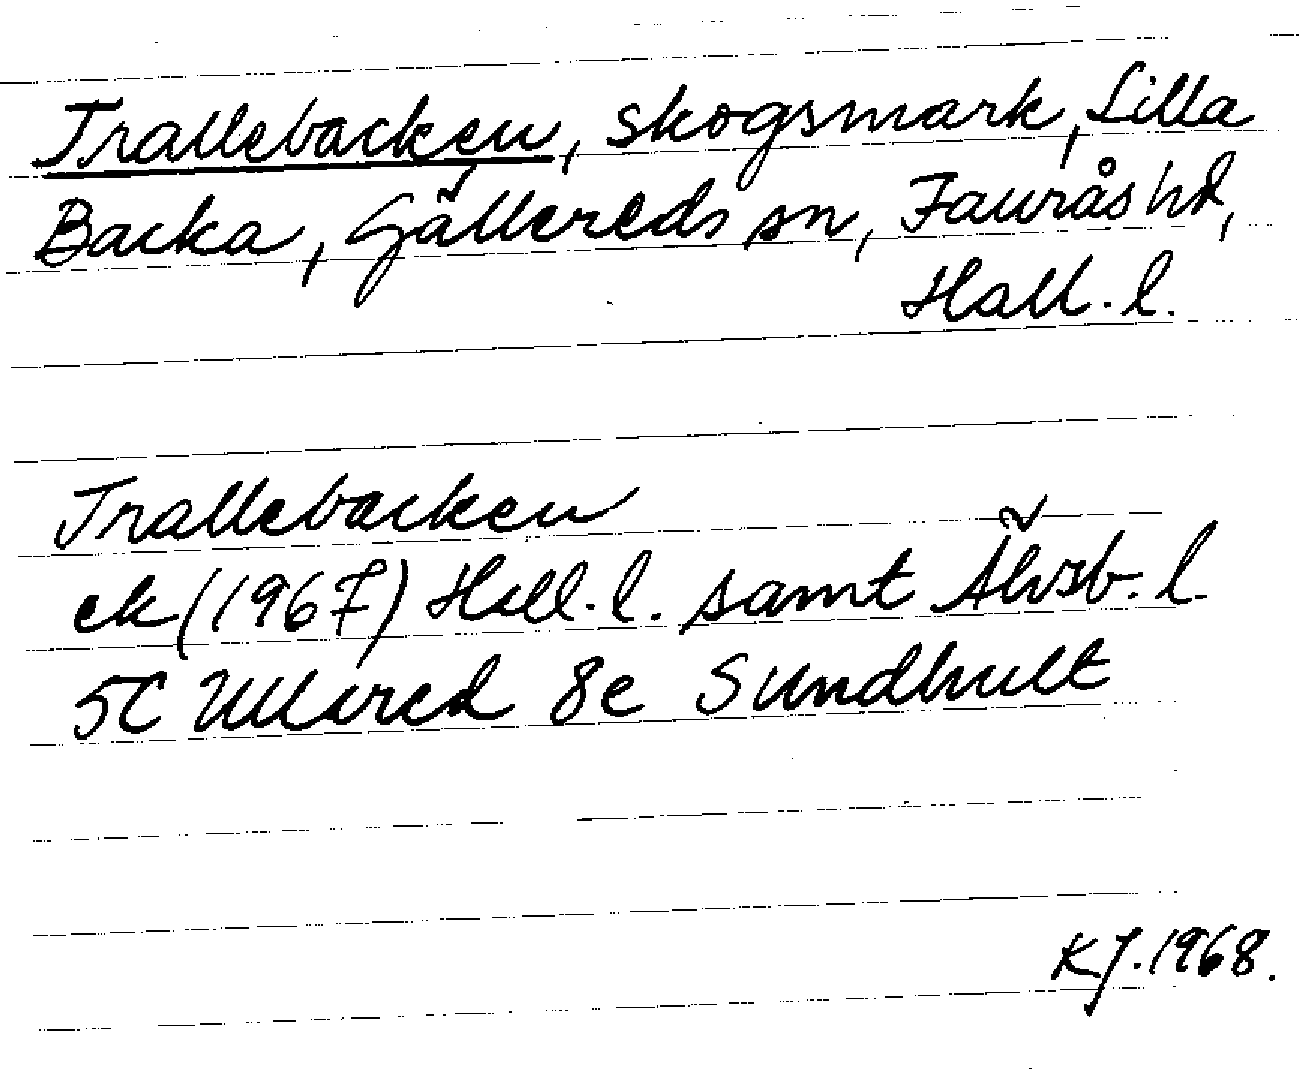 Trallebacken, skogsmark, Lilla
Backa, Gällereds sn, Faurås hd,
Hall. l.
Trallebacken
ek (1967) Hall. l. samt Älvsb. l.
5C Ullared 8e Sundhult
KJ. 1968.